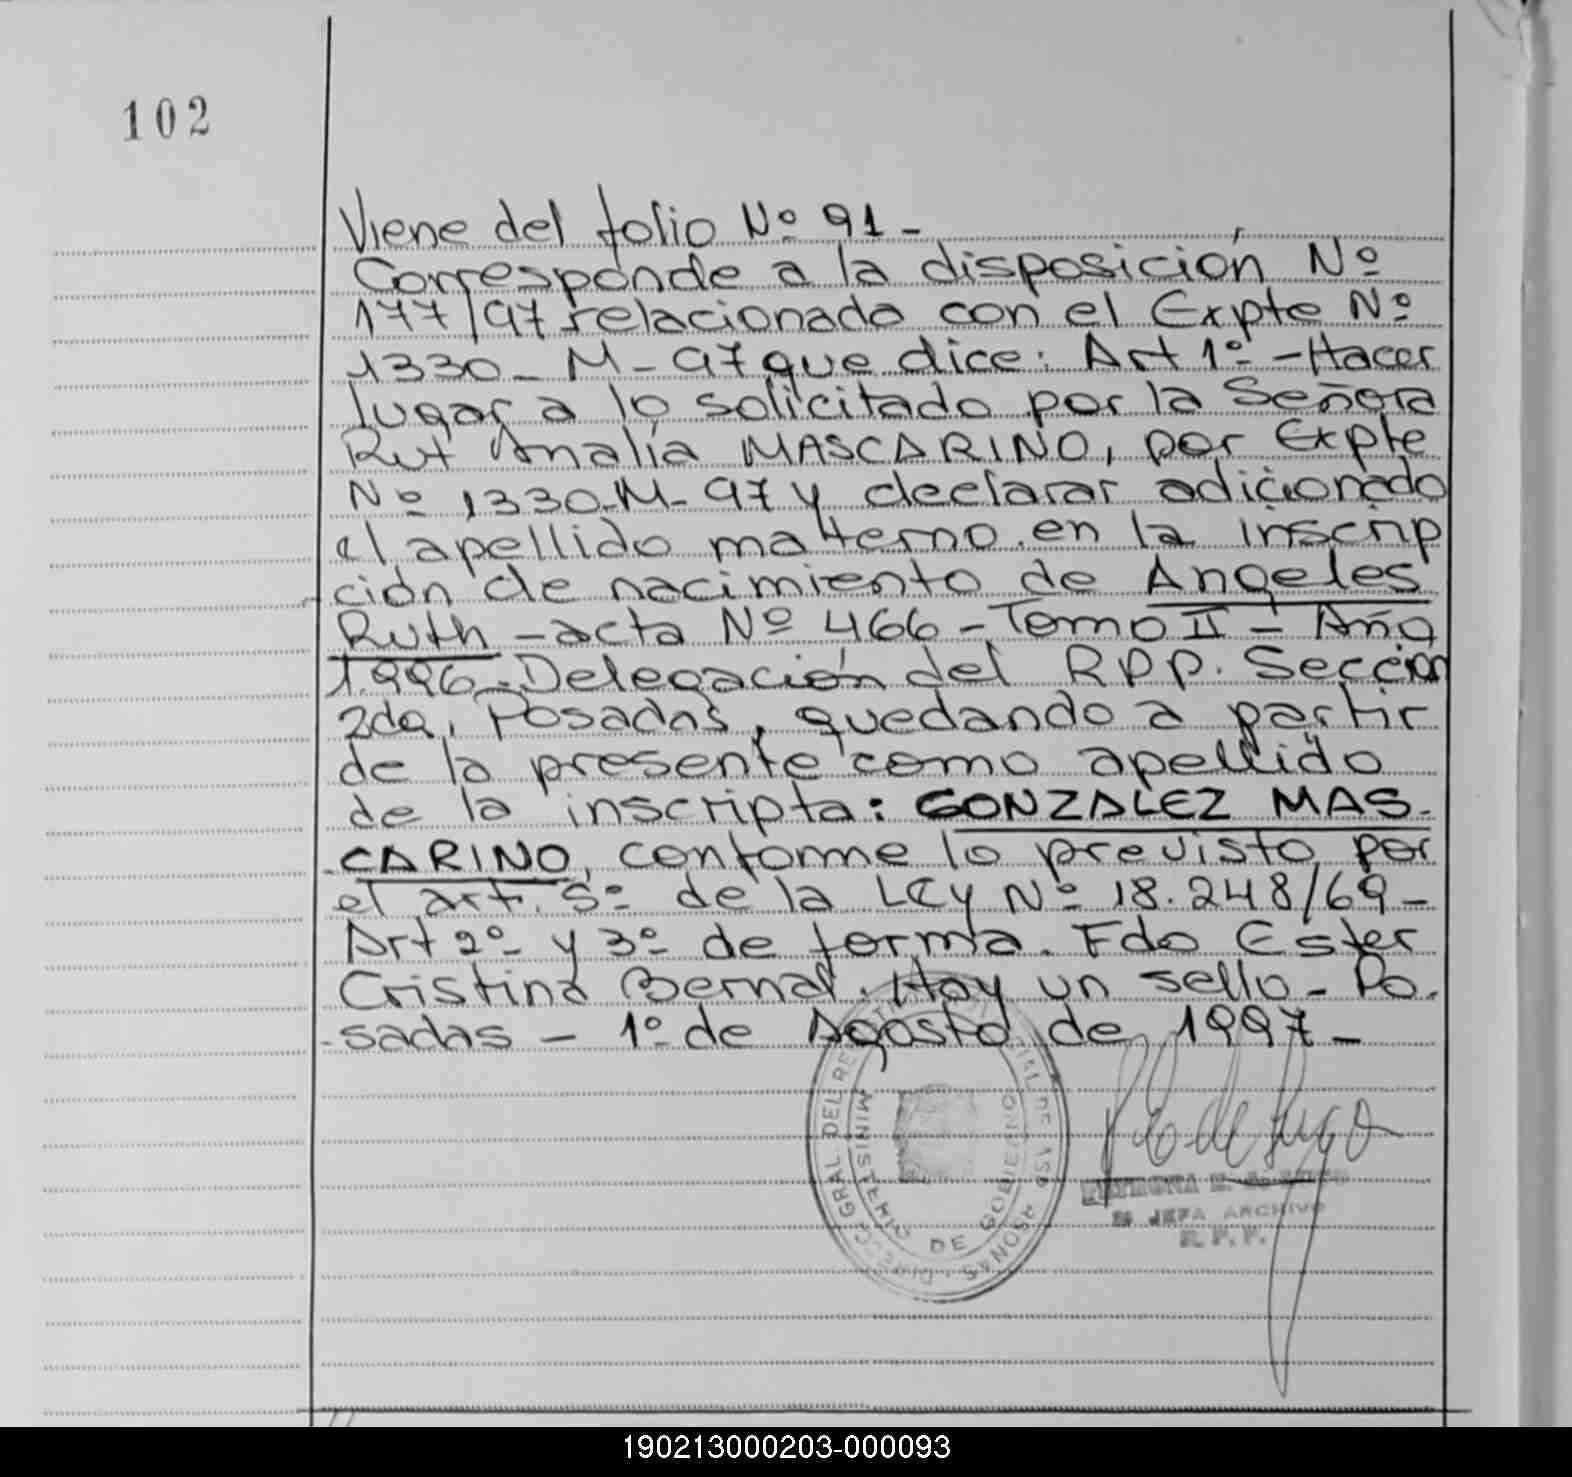 102
Viene del folio Nº 91-
Corresponde a la disposición Nº
177/97 relacionado con el Expte Nº
1330-M-97 que dice: Art 1º-Hacer
lugar a lo solicitado por la Señora
Rut Analía MASCARINO, por Expte
Nº 1330-M-97 y declarar adicionado
el apellido materno en la inscrip
ción de nacimiento de Angeles
Ruth-acta Nº 466-Tomo II-Año
1.996-Delegación del RPP. Sección
2da, Posadas, quedando a partir
de la presente como apellido
de la inscripta: GONZALEZ MAS-
-CARINO, conforme lo previsto por
el art. 5º de la Ley Nº 18.248/69-
Art 2º y 3º de forma. Fdo Ester
Cristina Bernal. Hay un sello-Po-
-sadas-1º de Agosto de 1997-
DIRECC. GRAL DEL
MINISTERIO DE GOBIERNO
MISIONES
JEFA ARCHIVO
R. P. P.
190213000203-000093